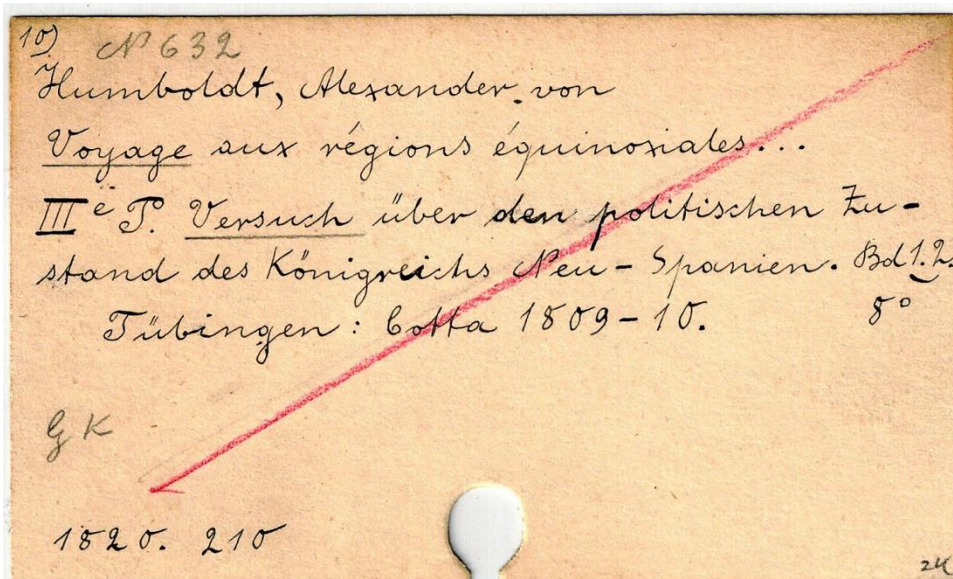 10)
N 632
Humboldt, Alexander von
Voyage aux régions équinoxiales...
IIIe P. Versuch über den politischen Zu-
stand des Königreichs Neu-Spanien. Bd 1.2.
Tübingen: Cotta 1809-10. 8°
G K
1820. 210